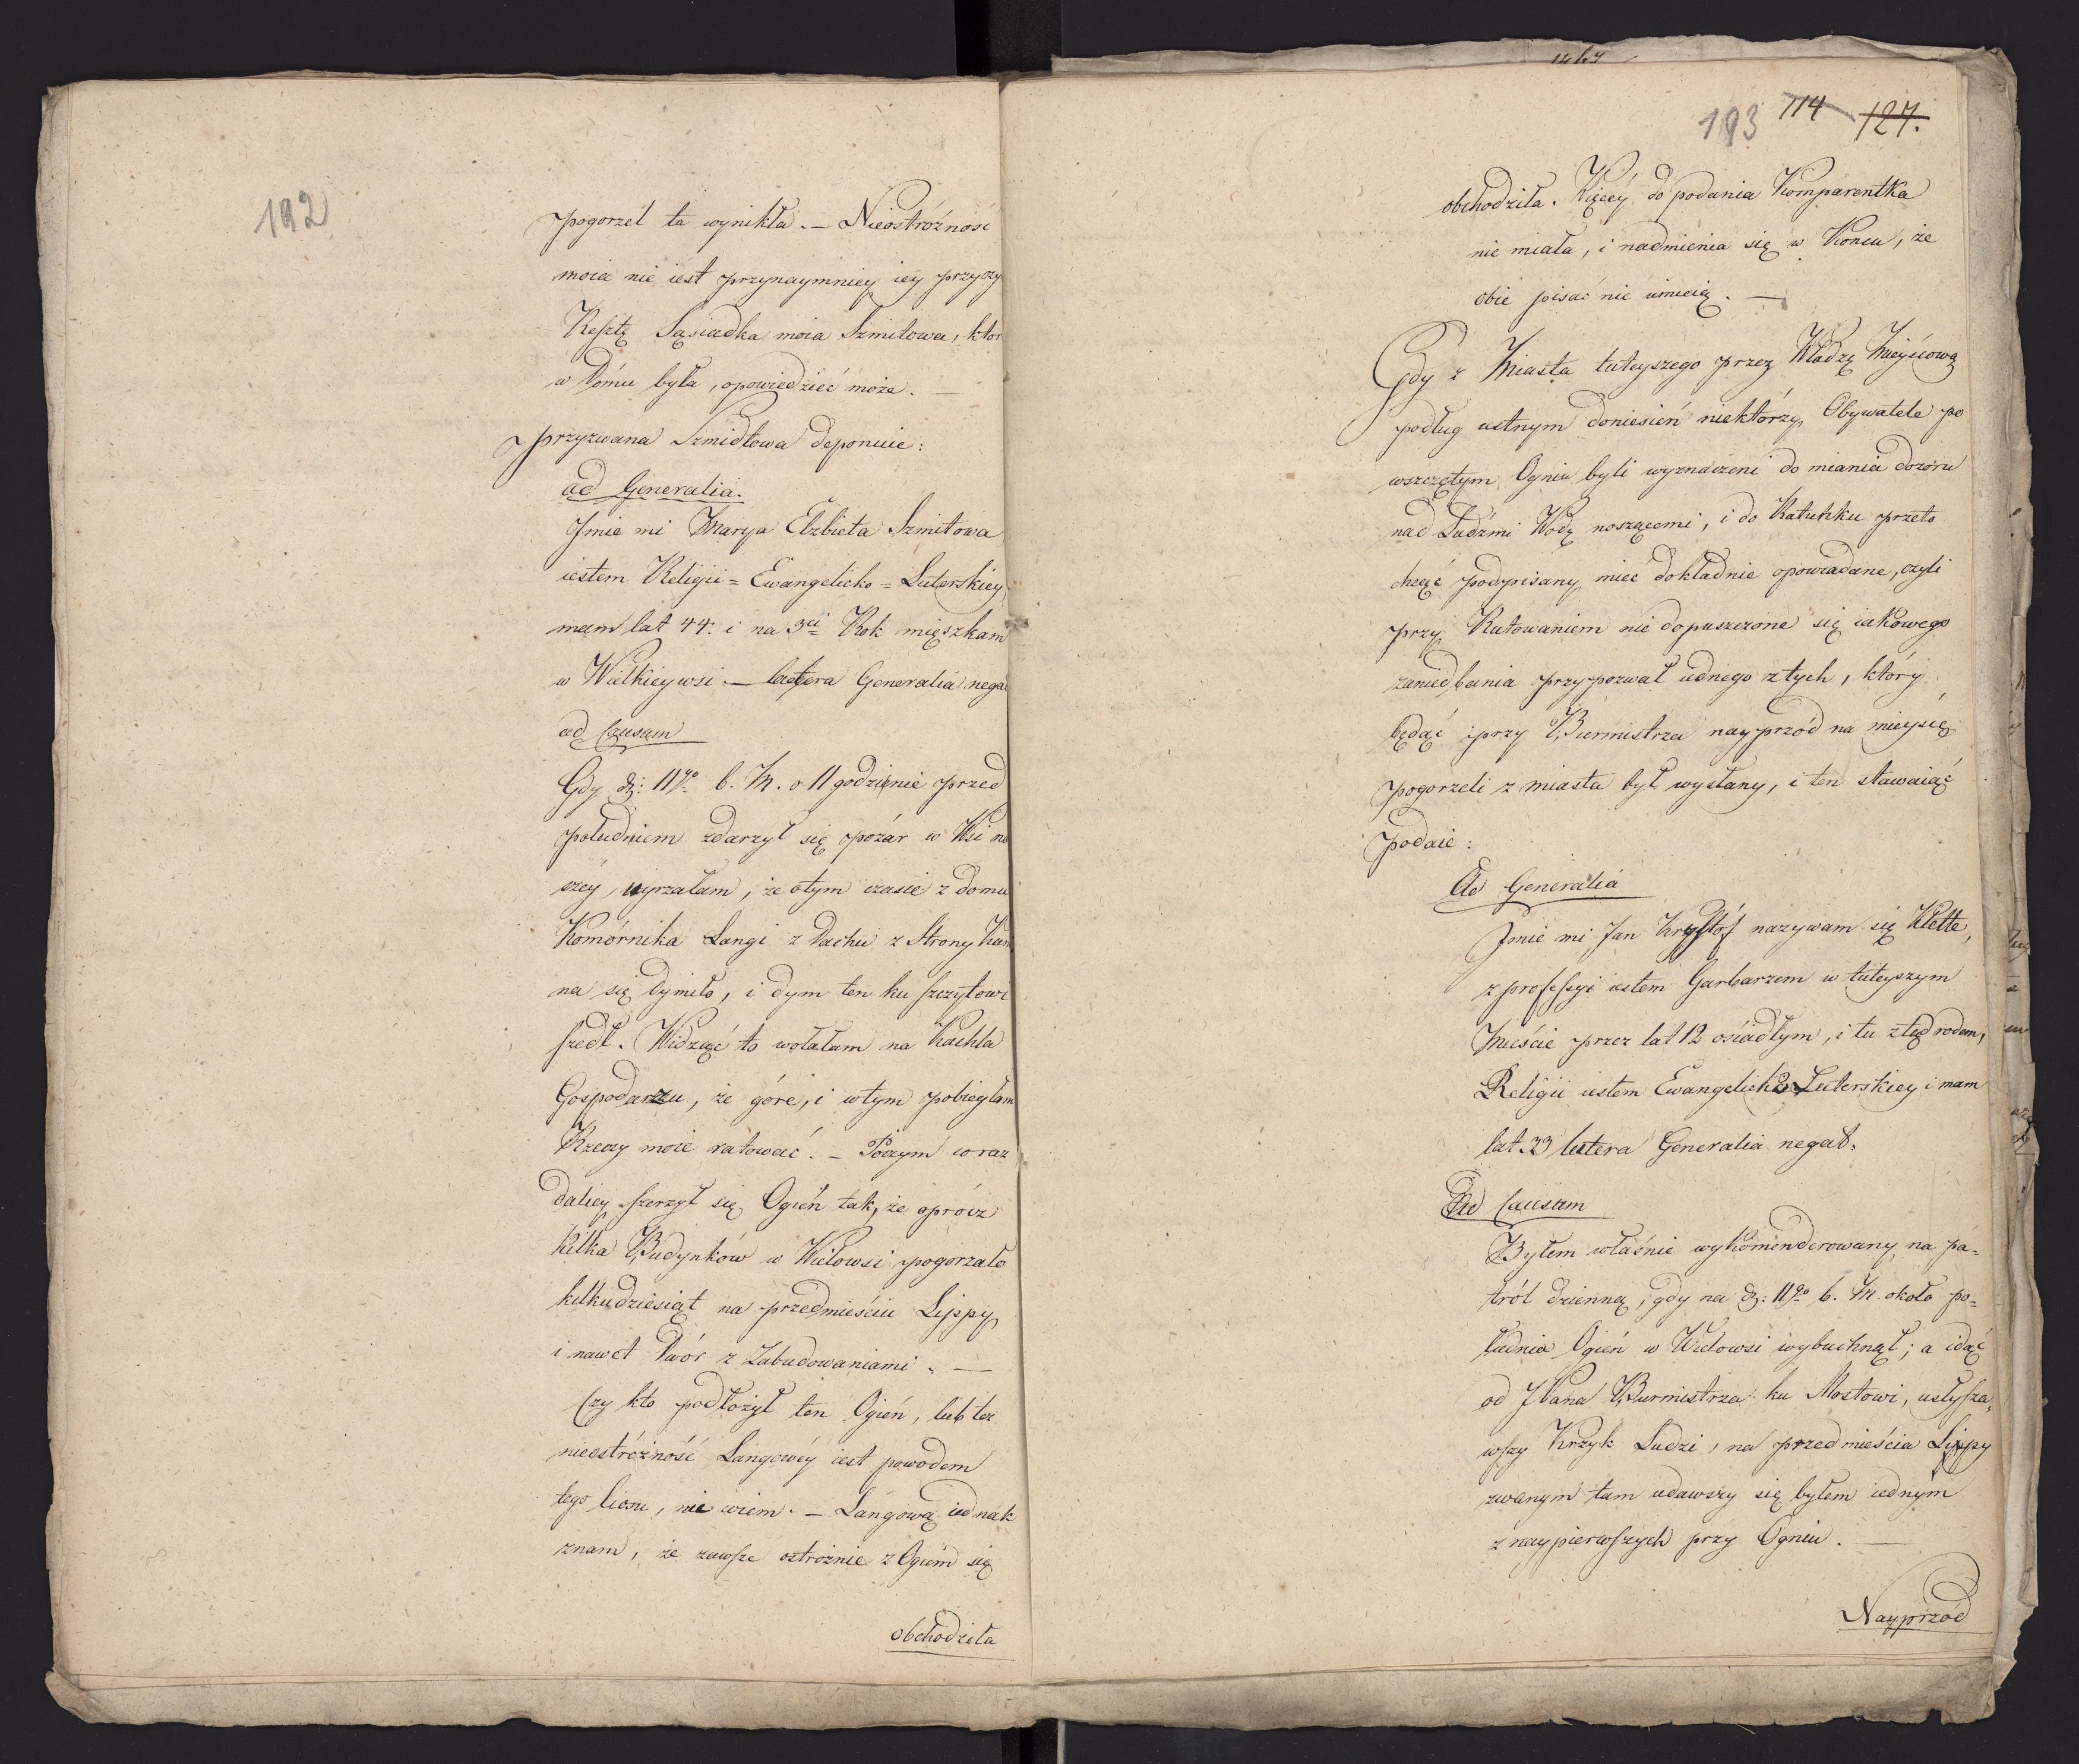 192
pogorzel ta wynikła. — Nieostróżność
moia nie iest przynaymniey iey przyczy
Resztę Sąsiadka moia Szmitowa, ktor
w Domu była, opowiedzieć może. —
przyzwana Szmidtowa deponuie:
ad Generalia.
Jmie mi Marya Elzbieta Szmitowa
iestem Religii = Ewangelicko = Luterskiey,
mam lat 44. i na 3ci Rok mięszkam
w Wielkieywsi — laetera Generalia nega
ad Causam
Gdy dz: 11go b. M. o 11 godzinie przed
południem zdarzył się pożar w Wsi na
szey, uyrzałam, że otym czasie z domu
Komórnika Langi z Dachu z Strony Kom
na się dymiło, i dym ten ku szczytowi
szedł. Widząc to wołałam na Kachla
Gospodarzu, że góre, i wtym pobiegłam
Rzeczy moie ratować. — Poczym coraz
daliey szerzył się Ogień tak, że oprócz
kilka Budynków w Wielowsi pogorzało
kilkudziesiąt na przedmieściu Lippy
i nawet Dwór z Zabudowaniami. —
Czy kto podłożył ten Ogień, lub też
nieostróżność Langowéy iest powodem
tego licsu, nie wiem. — Langową iednak
znam, że zawsze ostrożnie z Ogniem się
obchodziła
193 114 127.
obchodziła. Więcéy do podania Komparentka
nie miała, i nadmienia się w Koncu, że
obie pisać nie umieią. —
Gdy z Miasta tuteyszego przez Władzę Mieyscową
podług ustnym doniesień niektórzy Obywatele po
wszczętym Ogniu byli wyznaczeni do miania dozoru
nad Ludźmi Wodę noszącemi, i do Ratunku przeto
chcąć podpisany mieć dokładnie opowiadane, czyli
przy Ratowaniem nie dopuszczone się iakowego
zaniedbania przypozwał iednego z tych, który
będąć przy Burmistrza nayprzód na mieyscę
pogorzeli z miasta był wysłany, i ten stawaiąć
podaie:
Ad Generalia
Jmie mi Jan Krysztóf nazywam się Klette,
z professyi iestem Garbarzem w tuteyszym
Mieście przez lat 12 osiadłym, i tu ztąd rodem,
Religii iestem Ewangelicko Luterskiey i mam
lat 33 lutera Generalia negat.
Ad Causam
Byłem właśnie wykomenderowany na pa=
tról dzienną, gdy na dz: 11go b. M. około po=
łudnia Ogień w Wielowsi wybuchnął; a idąć
od JPana Burmistrza ku Mostowi, usłysza,
wszy Krzyk Ludzi, na przedmieścia Lippy
zwanym tam udawszy się byłem iednym
z naypierwszych przy Ogniu. —
Nayprzód